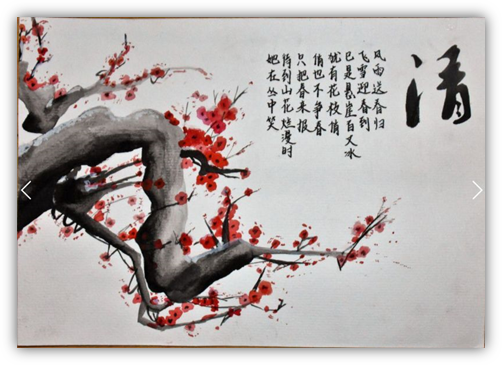 清
风雨送春归
飞雪迎春到
已是悬崖百丈冰
犹有花枝俏
俏也不争春
只把春来报
待到山花烂漫时
她在丛中笑